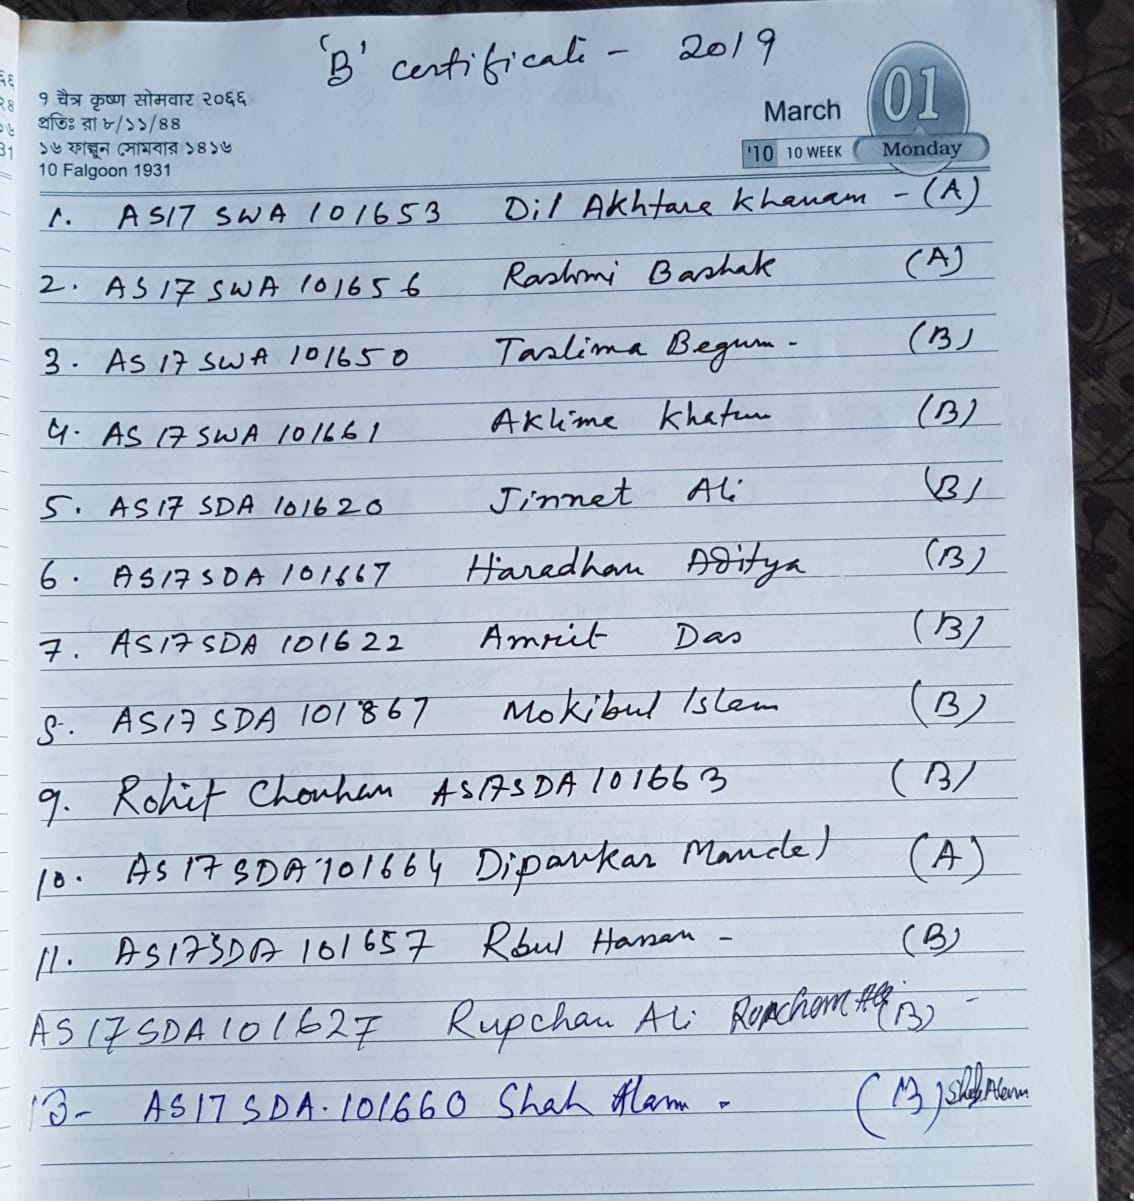 'B' certificate - 2019
१ चैत्र कृष्ण सोमवार २०६६
প্রতিঃ রা ৮/১১/৪৪
১৬ ফাল্গুন সোমবার ১৪১৬
10 Falgoon 1931
March 01
'10 10 WEEK Monday
1. AS17 SWA 101653 Dil Akhtare Khanam - (A)
2. AS17 SWA 101656 Rashmi Bashak (A)
3. AS17 SWA 101650 Taslima Begum - (B)
4. AS17 SWA 101661 Aklime Khatun (B)
5. AS17 SDA 101620 Jinnet Ali (B)
6. AS17 SDA 101667 Haradhan Aditya (B)
7. AS17 SDA 101622 Amrit Das (B)
8. AS17 SDA 101867 Mokibul Islam (B)
9. Rohit Chouhan AS17SDA 101663 (B)
10. AS17 SDA 101664 Dipankar Mandal (A)
11. AS17SDA 101657 Rbul Hassan - (B)
AS17SDA101627 Rupchan Ali Rupchan Ali (B) -
13- AS17 SDA. 101660 Shah Alam - (B) Shah Alam